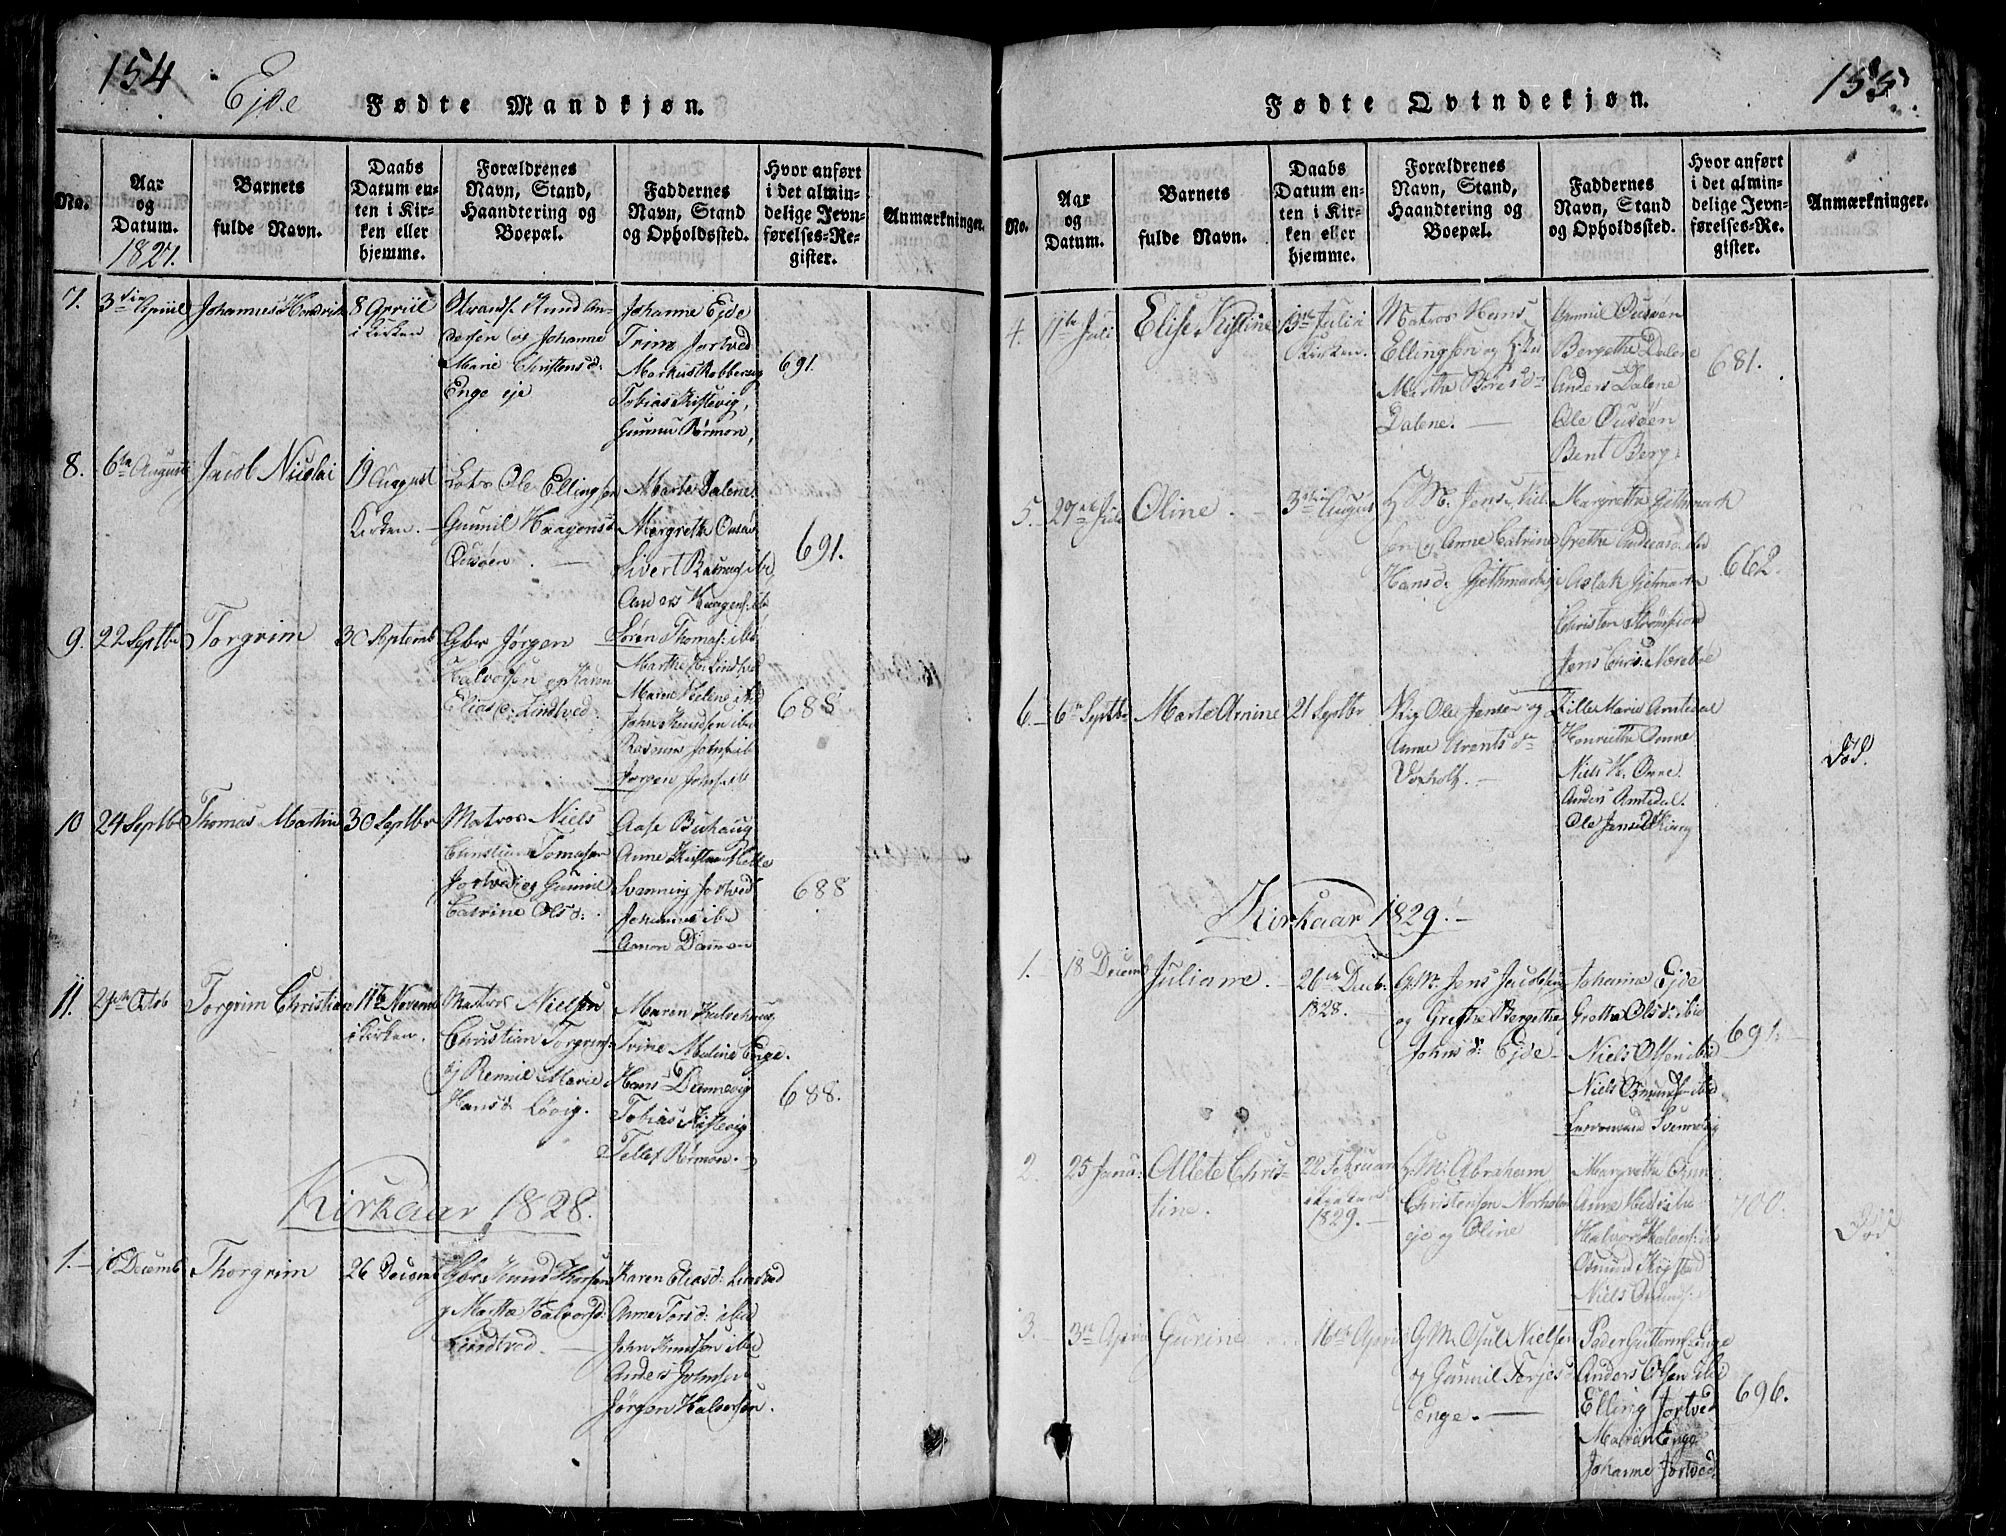 154
Ejde
Fødte Mandkjøn.
No.
Aar
og
Datum.
1827.
Barnets
fulde Navn.
Daabs
Datum en-
ten i Kir-
ken eller
hjemme.
Forældrenes
Navn, Stand,
Haandtering og
Boepæl.
Faddernes
Navn, Stand
og Opholdssted.
Hvor anført
i det almin-
delige Jevn-
førelses-Re-
gister.
Anmærkninger.
7.
3die Apriil
Johannes Hendrich
8 Apriil
i Kirken
Knud An-
dersen og Johanne
Marie Christensd:
Enge eje
Johanne Ejde
Trine Jortved
Markus
Tobias Kistevig,
Gunnu Rørmon,
691.
8.
6te August
Jacob Nicolai
19 August
Kirken.
Ole Ellingsen
Gunnil Haagensd
Ousøen.
Marte Dalene
Margrethe Ousøe
Sivert
Anders Haagens: ibi
691.
9.
22 Septbr
Torgrim
30 Septemb
Gbr Jørgen
Halvorsen og Karen
Eliasd. Lindtved.
Søren Thomas: ibi
Marthe H. Lindtved
Maren Helene ibid
John Knudsen ibi
Rasmus Johns: ib
Jørgen Johns: ib
688
10
24 Septbr
Thomas Martin
30 Septbr
Matros Niels
Christian Tomasen
Jortved og Gunnil
Catrine Olsd:
Aase Buhaug
Anne Kistine Helle
Svenning Jortved
Johannes ibid
Aanon
688
11.
Octob
Torgrim Christian
11te Novemb
i Kirken.
Matros Nielsen
Christian Torgrims:
og Remil Marie
Hansd Løvig.
Maren
Trine Maline Enge.
Hans Dannevig
Tobias Kistevig
Tellef Rørmon.
688.
Kirkaar 1828.
1.
16 Decemb
Thorgrim
26 Decemb
Gbr Knud Thorsen
og Marthe Halvorsd:
Lindtved.
Karen Eliasd: Lindtved
Anne Torsd: ibid
John Knudsøn ibid
Anders Johnsen
Jørgen Halvorsøn.
155
Fødte Qvindekjøn.
No.
Aar
og
Datum.
Barnets
fulde Navn.
Daabs
Datum en-
ten i Kir-
ken eller
hjemme.
Forældrenes
Navn, Stand,
Haandtering og
Boepæl.
Faddernes
Navn, Stand
og Opholdssted.
Hvor anført
i det almin-
delige Jevn-
førelses-Re-
gister.
Anmærkninger.
4.
11te Juli
Elise Kistine
13de Juli i
Kirken.
Matros Hans
Ellingsen og
Martha
Dalene.
Gunnil Ousøen
Bergethe Dalene
Anders Dalene
Ole Ousøen
Bent Berg
681.
5.
27de Juli
Oline
3die August
G M. Jens Niel-
sen og Anne Catrine
Hansd:
Margrethe
Grethe Andreasd ibid
Aslak
Christen Strømsund
Jens
662.
6.
6te Septbr
Marte Arnine
21 Septbr
Ole Jensen og
Anne Arentsdr
Voxholt.
Lille Marie Amtedal
Henriette Onne
Niels H. Onne.
Anders Amtedal.
Ole Jensen
Død.
Kirkaar 1829.
1.
18 Decemb
Juliane.
26de Decb.
1828.
G.M. Jens Jacobsen
og Grethe Bergethe
Johnsd: Ejde
Johanne Ejde
Grethe Olsd: ibid
Niels Olsen ibid
Niels Osmunds: ibid
Svennevig
691.
2.
25 Janu:
Allete Chris-
tine.
22 Februar
i Kirken
1829.
G.M. Abraham
Christensøn Norholm
eje og Oline
Margrethe Onne
Anne Hed: ibid
Halvor Halvors: ib
Osmund
Niels Osmunds:
700.
Død
3.
3de April
Gurine
16de April
G M. Osul Nielsen
og Gunnil Torjesd
Enge.
Peder Guttorms: Enge
Anders Olsen ibid
Elling Jortved
Maren Enge
Johanne Jortved.
696.